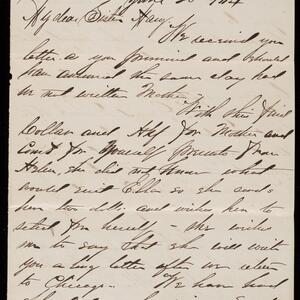 My dear Sister Mary
We received your
letter as you promised and should
have answered the same day had
we not written Mother.
With this find
Collar and Hkf for Mother and
Comb for yourself presents from
Helen, she did not know what
would suit Ella so she sends
her two dolls and wishes her to
select for herself - She wishes
me to say that she will write
you a long letter after we return
to Chicago. We have had